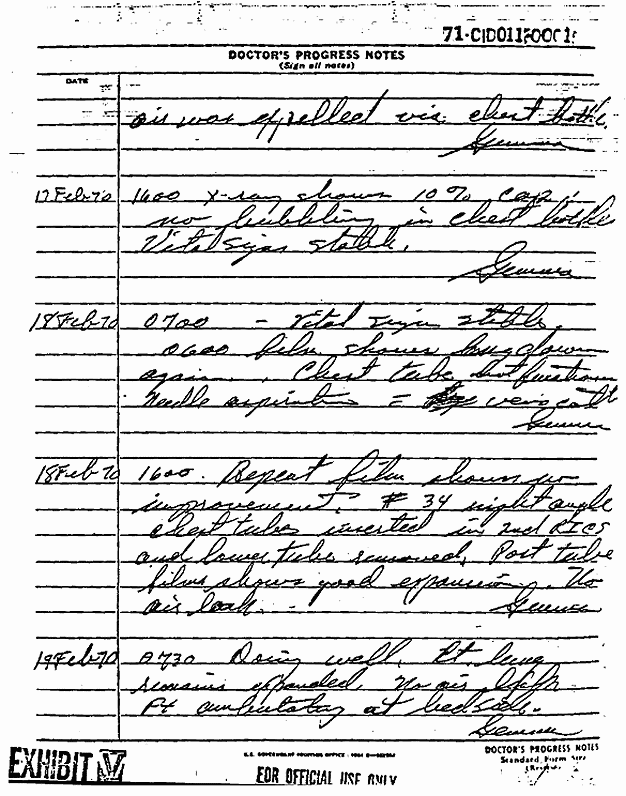 71-CID011
DOCTOR'S PROGRESS NOTES
(Sign all notes)
DATE
air was expelled via chest bottle.
Gemma
17Feb70 1600 X-ray shows 10% cap
no bubbling in chest bottle
Vital signs stable.
Gemma
18Feb70 0700 - Vital signs stable.
0600 film shows lung down
again. Chest tube not function
Needle aspiration =
Gemma
18Feb70 1600. Repeat film shows no
improvement. # 34 right angle
chest tubes inserted in 2nd RICS
and lower tube removed. Post tube
films shows good expansion. No
air leak.
Gemma
19Feb70 0730 Doing well. Rt. lung
remains expanded. No air
Pt ambulatory at bedside.
Gemma
EXHIBIT V
U.S. GOVERNMENT PRINTING OFFICE
FOR OFFICIAL USE ONLY
DOCTOR'S PROGRESS NOTES
Standard Form